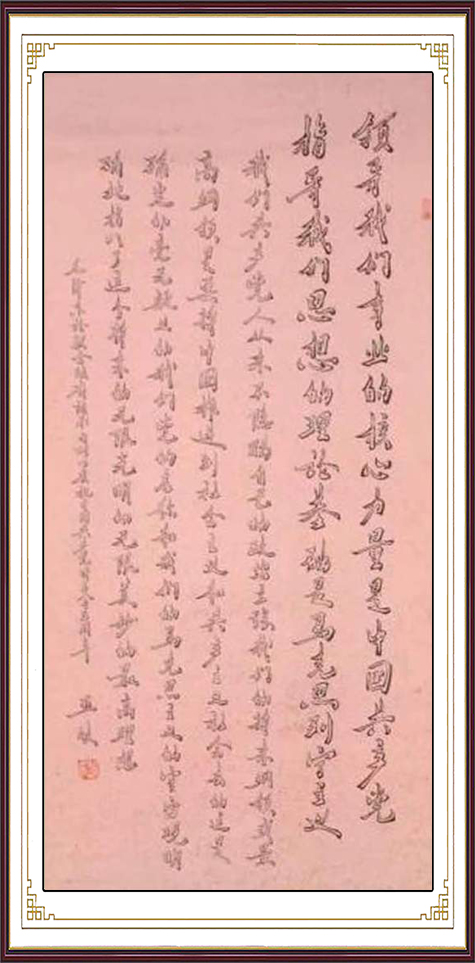 领导我们事业的核心力量是中國共产党
指导我们思想的理论基础是马克思列宁主义
我们共产党人从来不隐瞒自己的政治主张我们的将来纲领或最
高纲领是要将中國推进到社会主义和共产主义社会去的这是
确定的毫无疑义的我们党的名称和我们的马克思主义的宇宙观明
确地指明了这个将来的无限光明的无限美妙的最高理想